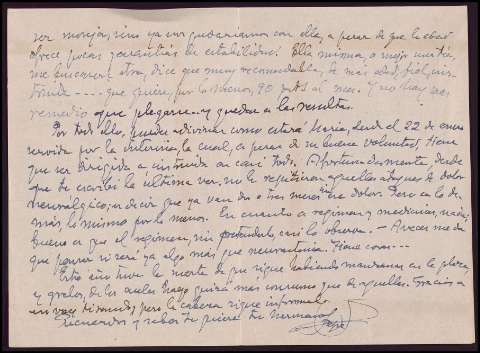 ser monja, sino ya nos quedaríamos con ella, a pesar de que la edad
ofrece pocas garantías de estabilidad. Ella misma, o mejor
me otra, dice que muy recomendable, de más edad, fiel,
que quiere, por lo menos, 90 pts al mes. Y no hay más
remedio que plegarse.. y quedar a las resultas.
Por todo ello, puedes adivinar como estará María, desde el 22 de enero
servida por la interina, la cual, a pesar de su buena voluntad, tiene
que ser dirigida e instruida en casi todo. Afortunadamente, desde
que te escribí la última vez, no le repitieron aquellos ataques de dolor
neurálgico; es decir que ya van dos o tres meses sin dolor. Pero en lo de-
más, lo mismo por lo menos. En cuanto a régimen y medicinas, nada;
bueno es que el régimen, sin pretenderlo, casi lo observa. — A veces me da
que pensar si será ya algo más que neurastenia. Tiene cosas ---
Este año tuve la suerte de que sigue habiendo manzanas en la plaza,
y gratos, de los cuales hago quizá más consumo que de aquellas. Gracias a
voy tirando, pero la cabeza sigue informal.
Recuerdos y sabes te quiere tu hermano
Pepe